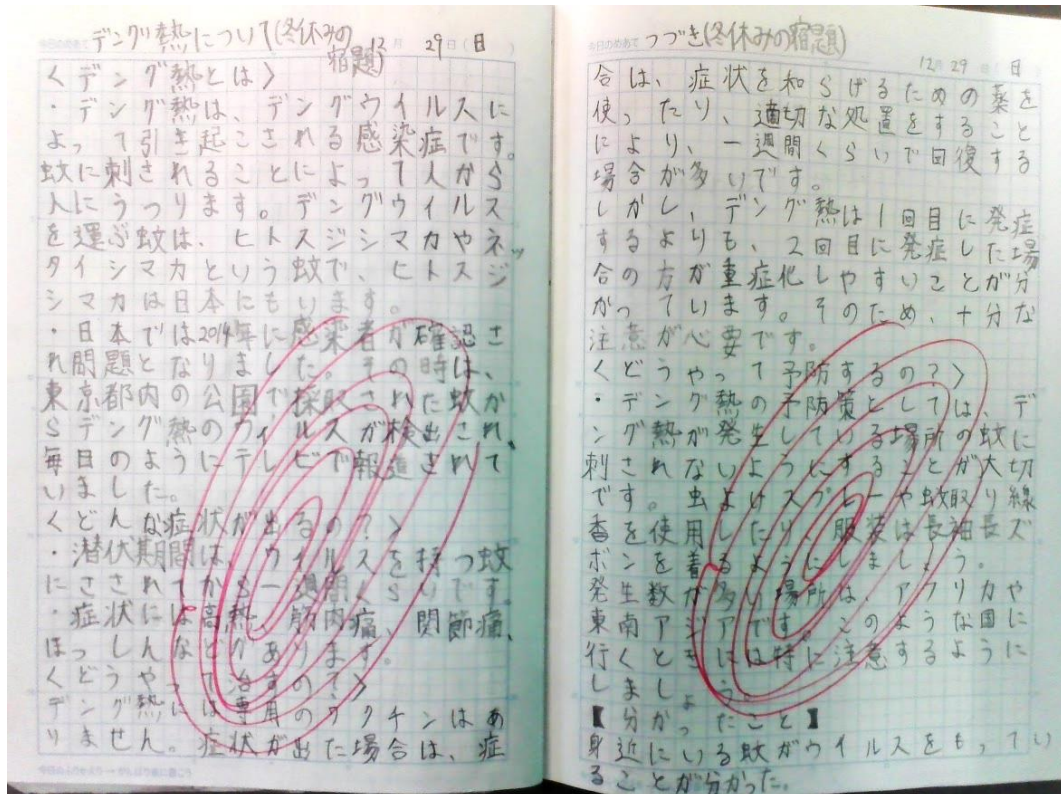 デング熱について(冬休みの
宿題)
12月29日(日)
<デング熱とは>
・デング熱は、デングウイルスに
よって引き起こされる感染症です。
蚊に刺されることによって人から
人にうつります。デングウイルス
を運ぶ蚊は、ヒトスジシマカやネッ
タイシマカという蚊で、ヒトスジ
シマカは日本にもいます。
・日本では2014年に感染者が確認さ
れ問題となりました。その時は、
東京都内の公園で採取された蚊か
らデング熱のウイルスが検出され、
毎日のようにテレビで報道されて
いました。
<どんな症状が出るの?>
・潜伏期間は、ウイルスを持つ蚊
にさされてから一週間くらいです。
・症状には高熱、筋肉痛、関節痛、
ほっしんなどがあります。
<どうやって治すの?>
デング熱には専用のワクチンはあ
りません。症状が出た場合は、症
今日のめあて つづき(冬休みの宿題)
12月29日(日)
合は、症状を和らげるための薬を
使ったり、適切な処置をすること
により、一週間くらいで回復する
場合が多いです。
しかし、デング熱は1回目に発症
するよりも、2回目に発症した場
合の方が重症化しやすいことが分
かっています。そのため、十分な
注意が心要です。
<どうやって予防するの?>
・デング熱の予防策としては、デ
ング熱が発生している場所の蚊に
刺されないようにすることが大切
です。虫よけスプレーや蚊取り線
香を使用したり、服装は長袖長ズ
ボンを着るようにしましょう。
発生数が多い場所は、アフリカや
東南アジアです。このような国に
行くときには特に注意するように
しましょう。
【分かったこと】
身近にいる蚊がウイルスをもってい
ることが分かった。